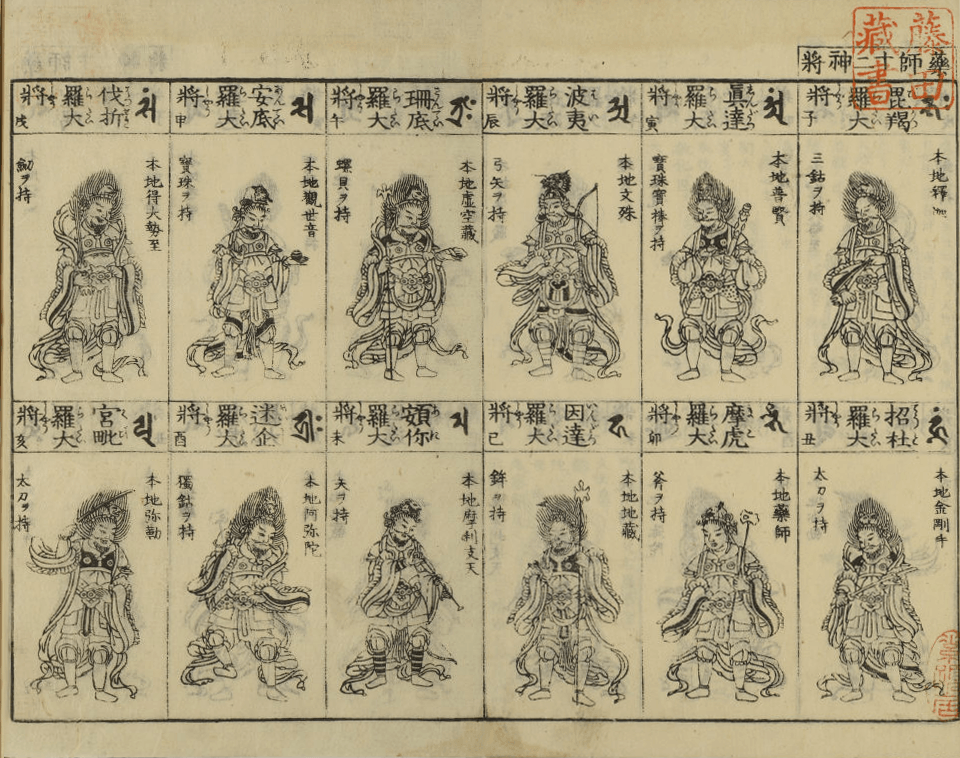 藥師十二神將
藤田
藏書
毘羯
羅大
將
子
本地釋迦
三鈷ヲ持
招杜
羅大
將
丑
本地金剛手
太刀ヲ持
眞達
羅大
將
寅
本地普賢
寶珠寶棒ヲ持
摩虎
羅大
將
卯
本地藥師
斧ヲ持
波夷
羅大
將
辰
本地文殊
弓矢ヲ持
因達
羅大
將
巳
本地地藏
鉾ヲ持
珊底
羅大
將
午
本地虚空藏
螺貝ヲ持
頞你
羅大
將
未
本地摩利支天
矢ヲ持
安底
羅大
將
甲
本地觀世音
寶珠ヲ持
迷企
羅大
將
酉
本地阿弥陀
獨鈷ヲ持
伐折
羅大
將
戌
本地得大勢至
劒ヲ持
宮毗
羅大
將
亥
本地弥勒
太刀ヲ持